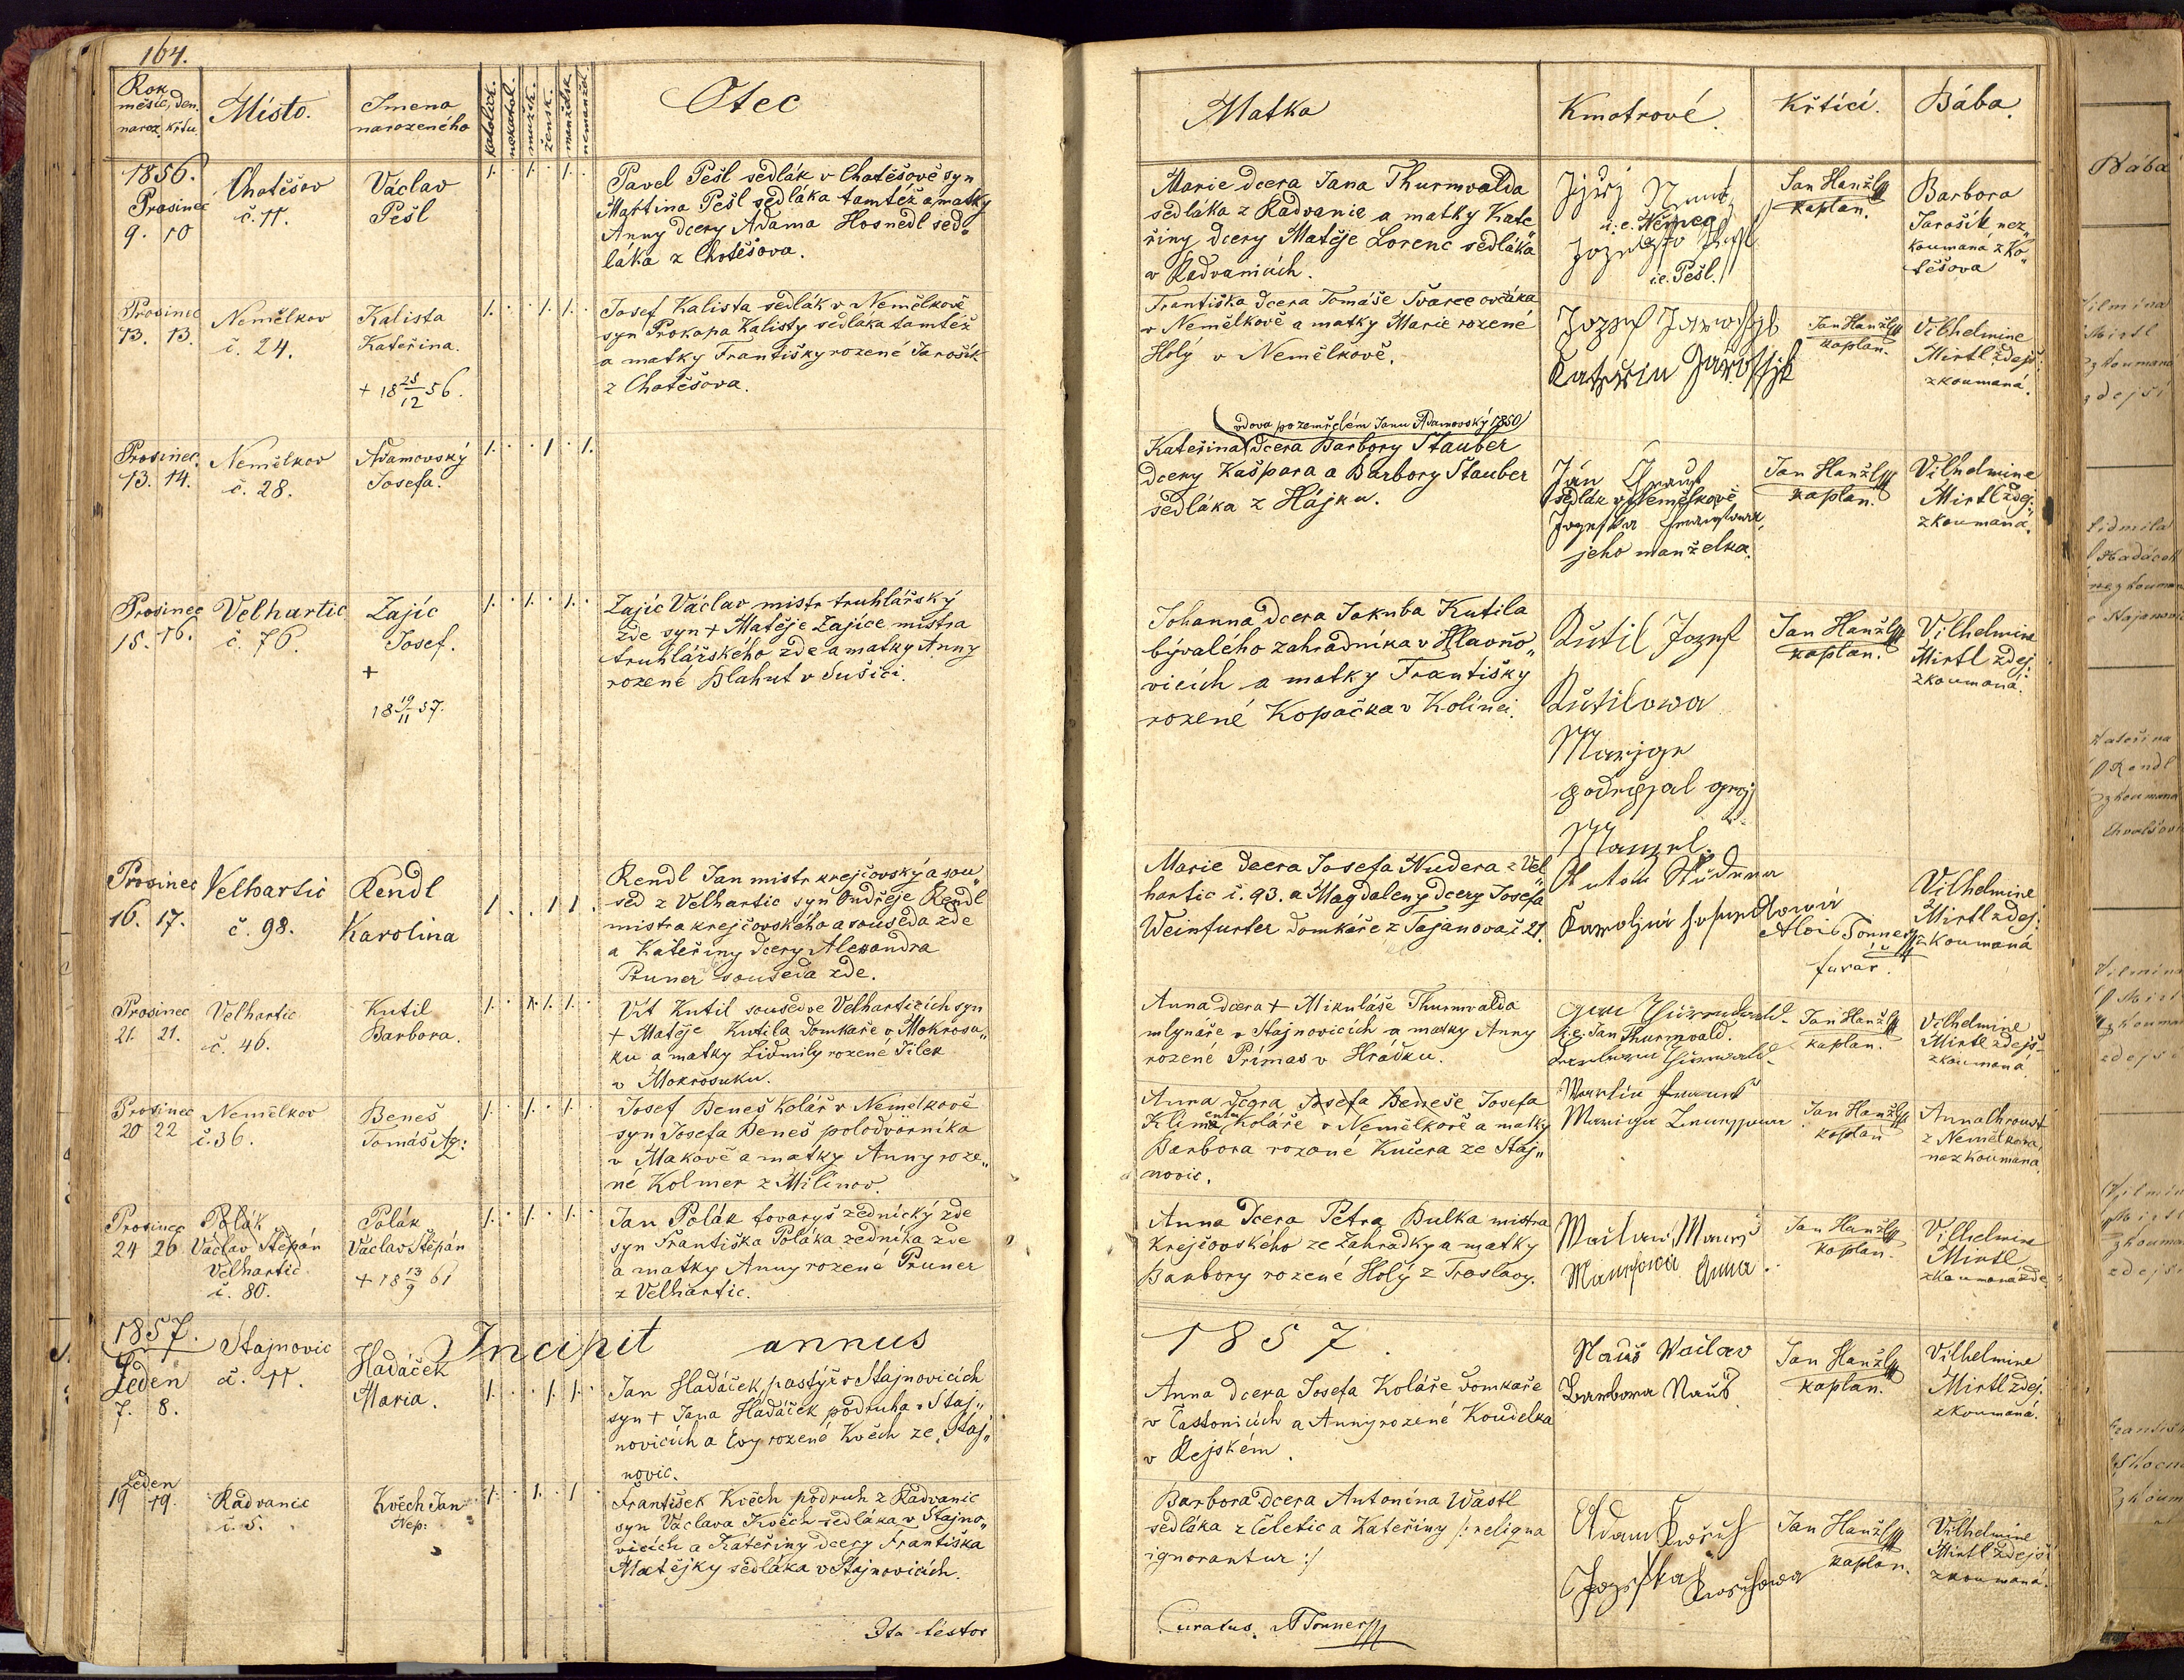 164.
Rok
měsíc, den.
naroz. křtu
Místo.
Jmeno
narozeného
katolick.
nekatol.
mužsk.
žensk.
manželsk.
nemanžel.
Otec
Matka
Kmotrové.
Křtící.
Bába.
1856.
Prosinec
9. 10
Chotěšov
č. 11.
Václav
Pešl
Pavel Pešl sedlák v Chotěšově syn
Martina Pešl sedláka tamtéž a matky
Anny dcery Adama Hosnedl sed„
láka z Chotěšova.
Marie dcera Jana Thurnwalda
sedláka z Radvanic a matky Kate„
řiny dcery Matěje Lorenc sedláka
v Radvanicích.
i.e. Němec
i.e. Pešl.
Jan Hanžl
kaplan.
Barbora
Jarošík, nez„
koumaná z Ko„
těšova
Prosinec
13. 13.
Nemělkov
č. 24.
Kalista
Kateřina.
+ 18 28/12 56.
Josef Kalista sedlák v Nemělkově
syn Prokopa Kalisty sedláka tamtéž
a matky Františky rozené Jarošík
z Chotěšova.
Františka dcera Tomáše Švarce ovčáka
v Nemělkově a matky Marie rozené
Holý v Nemělkově.
Jozef
Jan Hanžl
kaplan.
Vilhelmine
Mirtl zdejš:
zkoumaná.
Prosinec
13. 14.
Nemělkov
č. 28.
Adamovský
Josefa.
vdova po zemřelém Janu Adamovský 1850
Kateřina dcera Barbory Stauber
dcery Kašpara a Barbory Stauber
sedláka z Hájku.
Ján
sedlák v Nemělkově
jeho manželka.
Jan Hanžl
kaplan.
Vilhelmine
Mirtl zdej:
zkoumaná.
Prosinec
15. 16.
Velhartic
č. 76.
Zajíc
Josef.
+
18 19/11 57.
Zajíc Václav mistr truhlářský
zde syn + Matěje Zajíce mistra
truhlářského zde a matky Anny
rozené Blahut v Sušici.
Johanna dcera Jakuba Kutila
bývalého zahradníka v Hlavňo„
vicích a matky Františky
rozené Kopačka v Kolinci.
Kutil Jozef
Kutilowa
Marige
Manzel.
Jan Hanžl
kaplan.
Vilhelmine
Mirtl zdej.
zkoumaná.
Prosinec
16. 17.
Velhartic
č. 98.
Rendl
Karolina
Rendl Jan mistr krejčovský a sou„
sed z Velhartic syn Ondřeje Rendl
mistra krejčovského a souseda zde
a Kateřiny dcery Alexandra
Pruner souseda zde.
Marie dcera Josefa Nudera z Vel„
hartic č. 93. a Magdaleny dcery Josefa
Weinfurter domkáře z Tajanova č 21.
Alois Tonner
farář.
Vilhelmine
Mirtl zdej.
zkoumaná
Prosinec
21. 21.
Velhartic
č. 46.
Kutil
Barbora.
Vít Kutil soused ve Velharticích syn
+ Matěje Kutila domkáře v Mokrosu„
ku a matky Lidmily rozené Jílek
v Mokrosuku.
Anna dcera + Mikuláše Thurnwalda
mlynáře v Stajnovicích a matky Anny
rozené Prímas v Hrádku.
i.e. Jan Thurnwald.
Jan Hanžl
kaplan.
Vilhelmine
Mirtl zdejš.
zkoumaná
Prosinec
20 22
Nemělkov
č. 36.
Beneš
Tomáš Ap:
Josef Beneš kolář v Nemělkově
syn Josefa Beneš polodvorníka
v Makově a matky Anny roze„
né Kolmer z Milínov.
Anna dcera Josefa Beneše Josefa
Klimenta koláře v Nemělkově a matky
Barbora rozené Kučera ze Staj„
novic.
Martin
Jan Hanžl
kaplan
Anna Chroust
z Nemělkova,
nezkoumaná.
Prosinec
24 26
Polák
Václav Štěpán
Velhartic
č. 80.
Polák
Václav Štěpán
+ 18 13/9 61
Jan Polák tovaryš zednický zde
syn Františka Poláka zedníka zde
a matky Anny rozené Pruner
z Velhartic.
Anna dcera Petra Bulka mistra
krejčovského ze Zahrádky a matky
Barbory rozené Holý z Braslavy.
Anna
Jan Hanžl
kaplan.
Vilhelmine
Mirtl
zkoumaná zde
1857.
Incipit annus
1857.
Leden
7. 8.
Stajnovic
č. 11.
Hadáček
Maria.
Jan Hadáček, pastýř v Stajnovicích
syn + Jana Hadáček podruha v Staj„
novicích a Evy rozené Kvěch ze Staj„
novic.
Anna dcera Josefa Koláře domkaře
v Častonicích a Anny rozené Koudelka
v Rejském.
Nauš Václav
Barbora Nauš
Jan Hanžl
kaplan.
Vilhelmine
Mirtl zdej.
zkoumaná.
Leden
19 19.
Radvanic
č. 5.
Kvěch Jan
Nep:
František Kvěch podruh z Radvanic
syn Václava Kvěch sedláka v Stajno„
vicích a Kateřiny dcery Františka
Matějky sedláka v Stajnovicích.
Barbora dcera Antonína Wastl
sedláka z Čeletic a Kateřiny /: reliqua
ignorantur :/
Adam
Jan Hanžl
kaplan.
Vilhelmine
Mirtl zdejší
zkoumaná.
Ita testor
Curatus. A Tonner